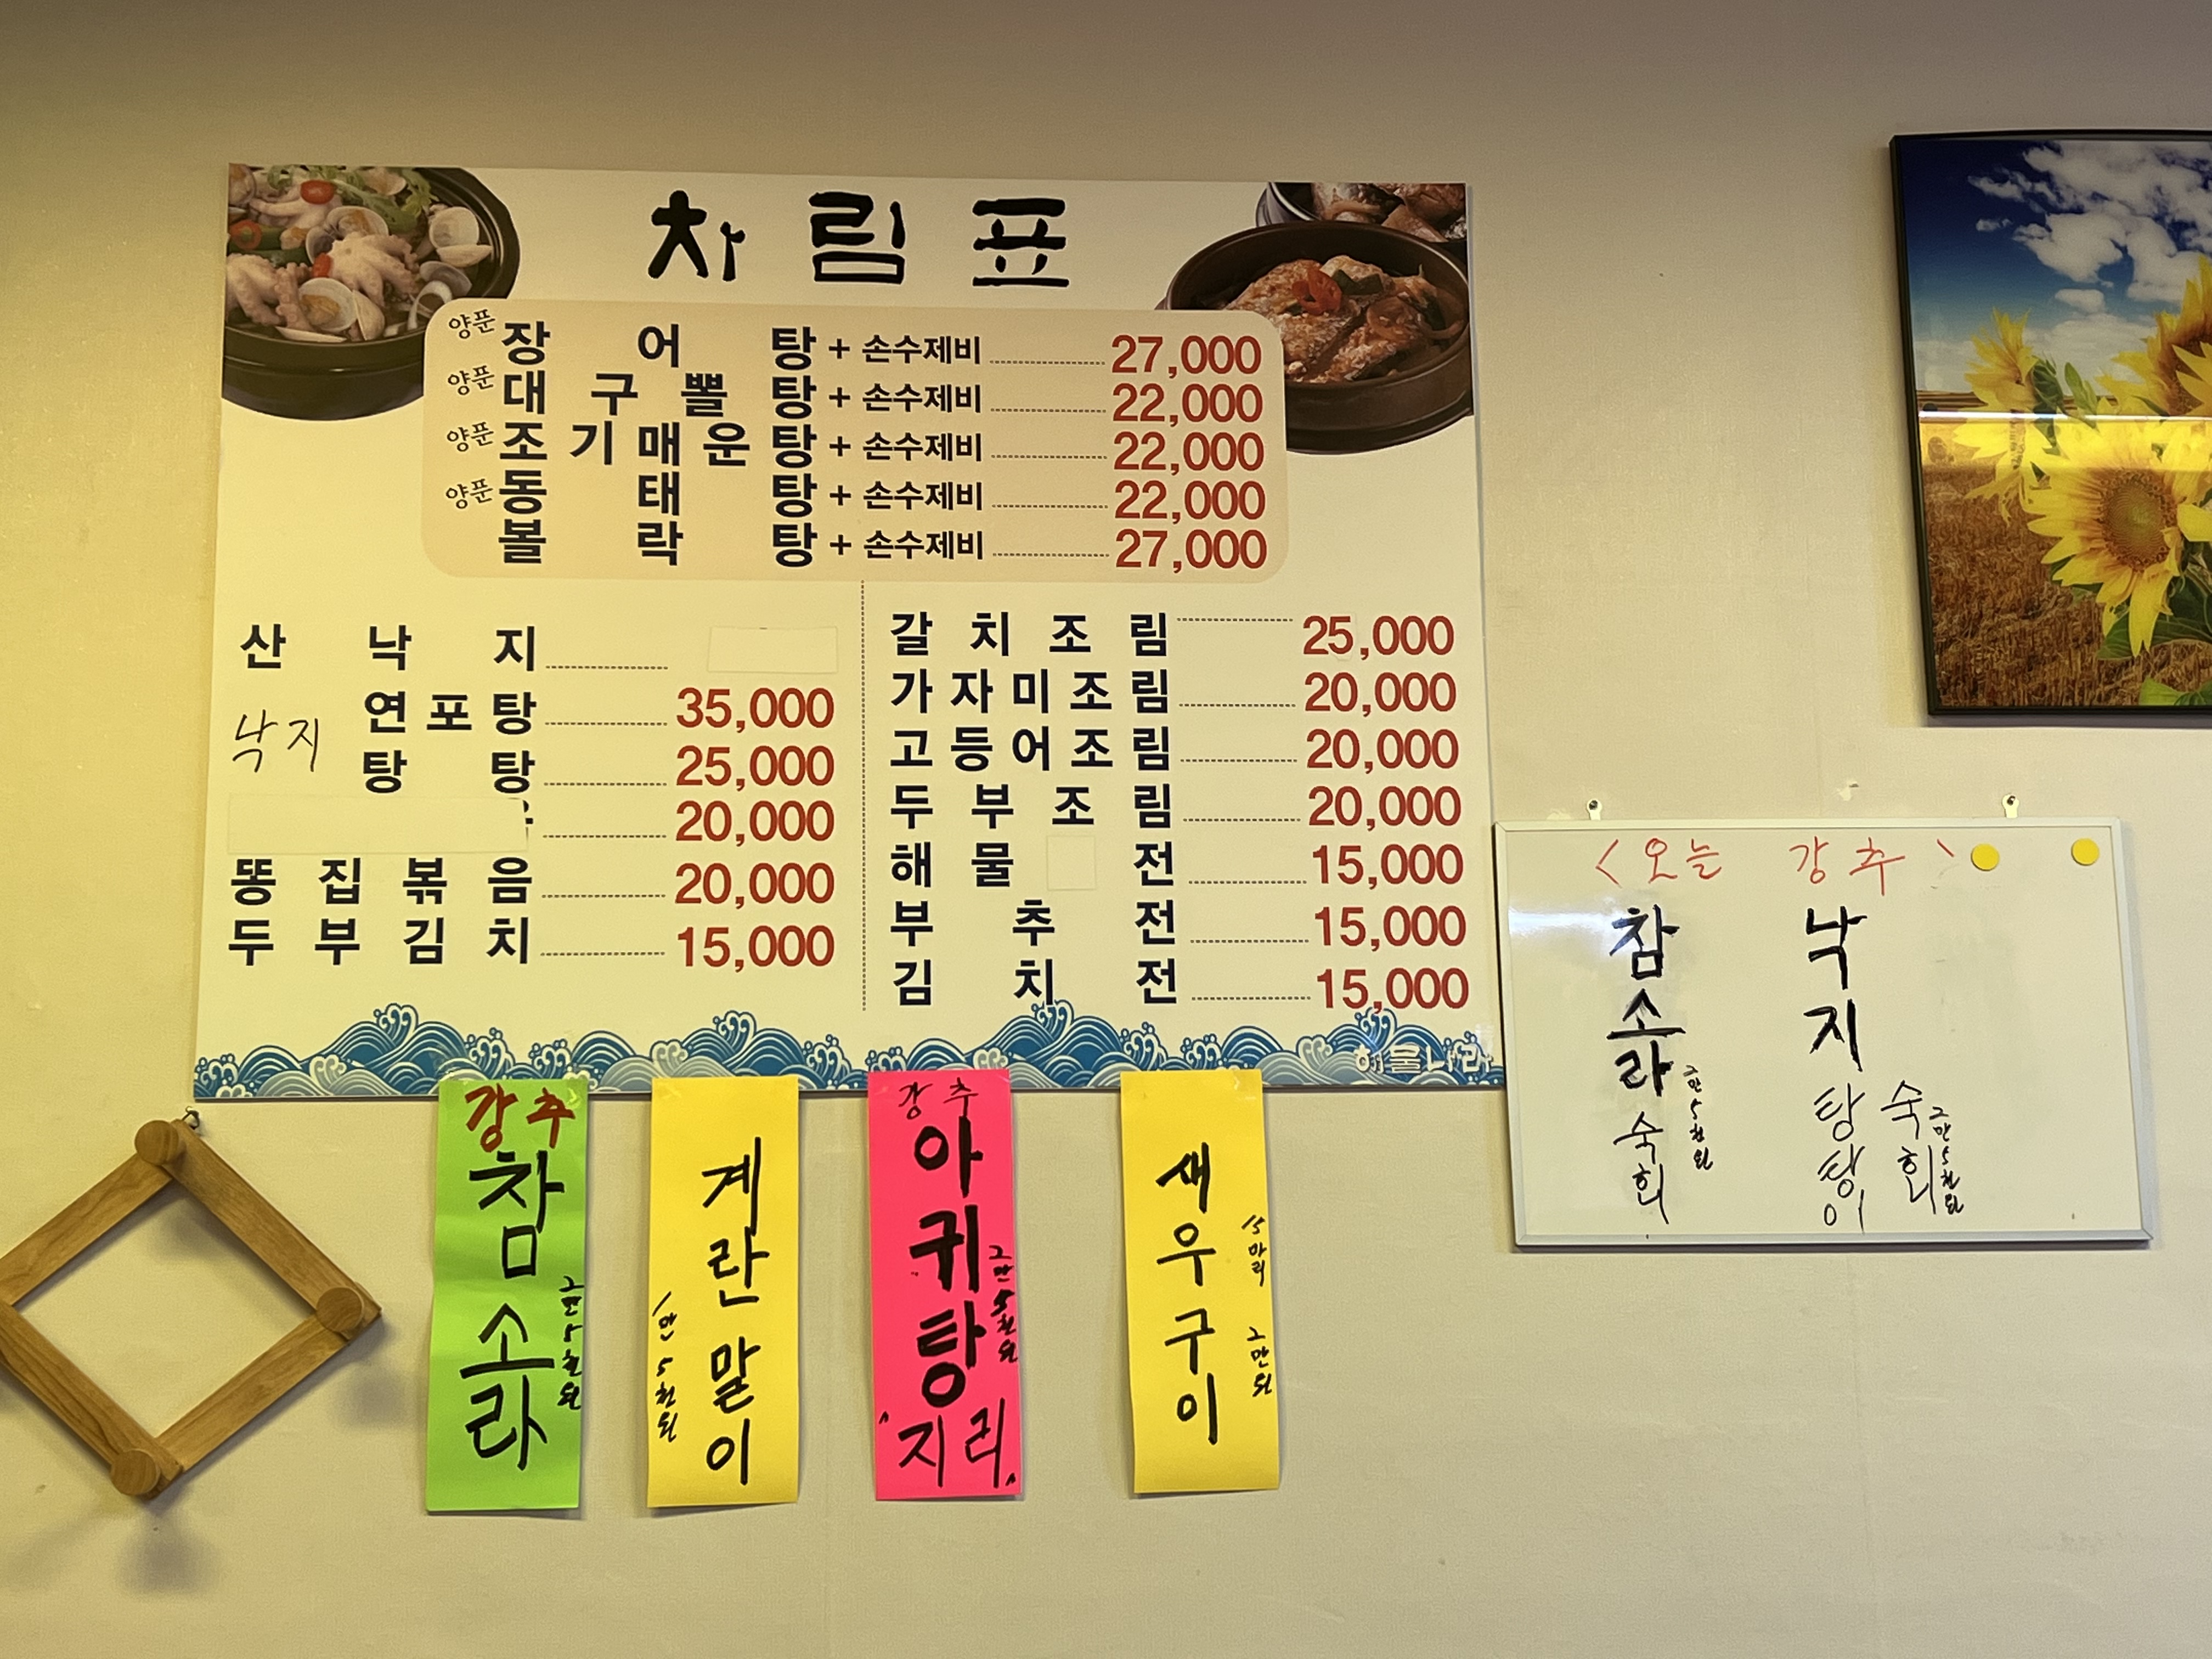 차림표
양푼 장어탕 + 손수제비 27,000
양푼 대구뽈탕 + 손수제비 22,000
양푼 조기매운탕 + 손수제비 22,000
양푼 동태탕 + 손수제비 22,000
볼락탕 + 손수제비 27,000
산낙지
낙지
연포탕 35,000
탕탕 25,000
20,000
똥집볶음 20,000
두부김치 15,000
갈치조림 25,000
가자미조림 20,000
고등어조림 20,000
두부조림 20,000
해물전 15,000
부추전 15,000
김치전 15,000
해물나라
강추
참소라
2만5천원
계란말이
1만5천원
강추
아귀탕
2만5천원
"지리"
새우구이
15마리 2만원
<오늘 강추>
참소라 숙회
2만5천원
낙지
탕탕이
숙회
2만5천원